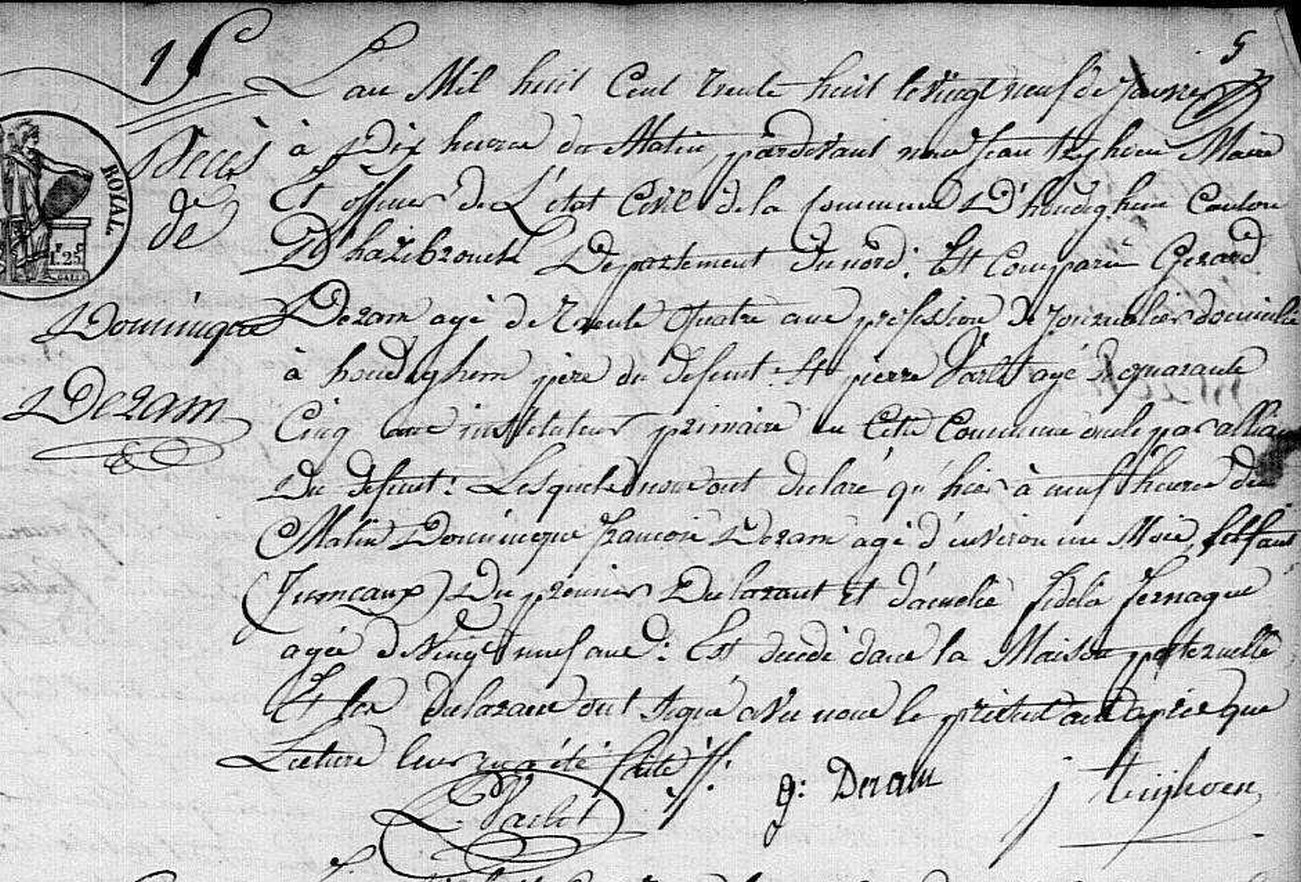 15
5
ROYAL
1.25
Décès
de
Dominique
Deram
L'an Mil huit Cent trente huit le vingt neuf de Janvier
à Dix heures du Matin, pardevant nous Jean Maire
Et officier de L'état Civil de la Commune D'hondeghem Canton
D'hazebrouck Departement du nord: Est Comparu Gerard
Deram agé de trente quatre ans profession de journalier domicilié
à hondeghem père du defunt: Et pierre agé de quarante
Cinq ans instituteur primaire en Cette Commune oncle par allian
Du defunt: Lesquels nous ont declaré qu'hier à neuf heures du
Matin Dominique françois Deram agé d'environ un Mois,
(Jumeaux) Du premier Declarant et d'amelie fidele fernague
agée de Vingt neuf ans: Est decedé dans la Maison paternelle
Et les declarans ont signé avec nous le présent acte après que
Lecture leur en a été faite
g: Deram